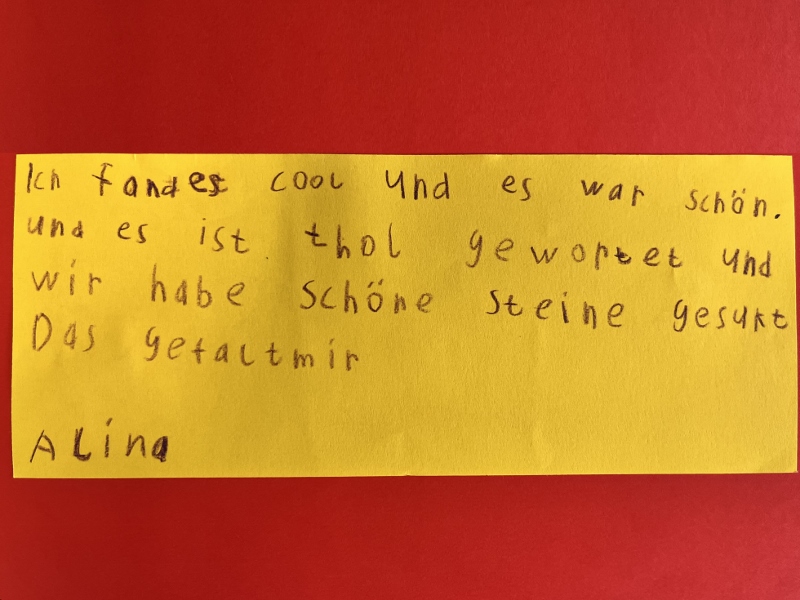 Ich fandes cool und es war schön.
und es ist thol gewortet und
wir habe schöne steine gesukt
Das gefaltmir
ALina